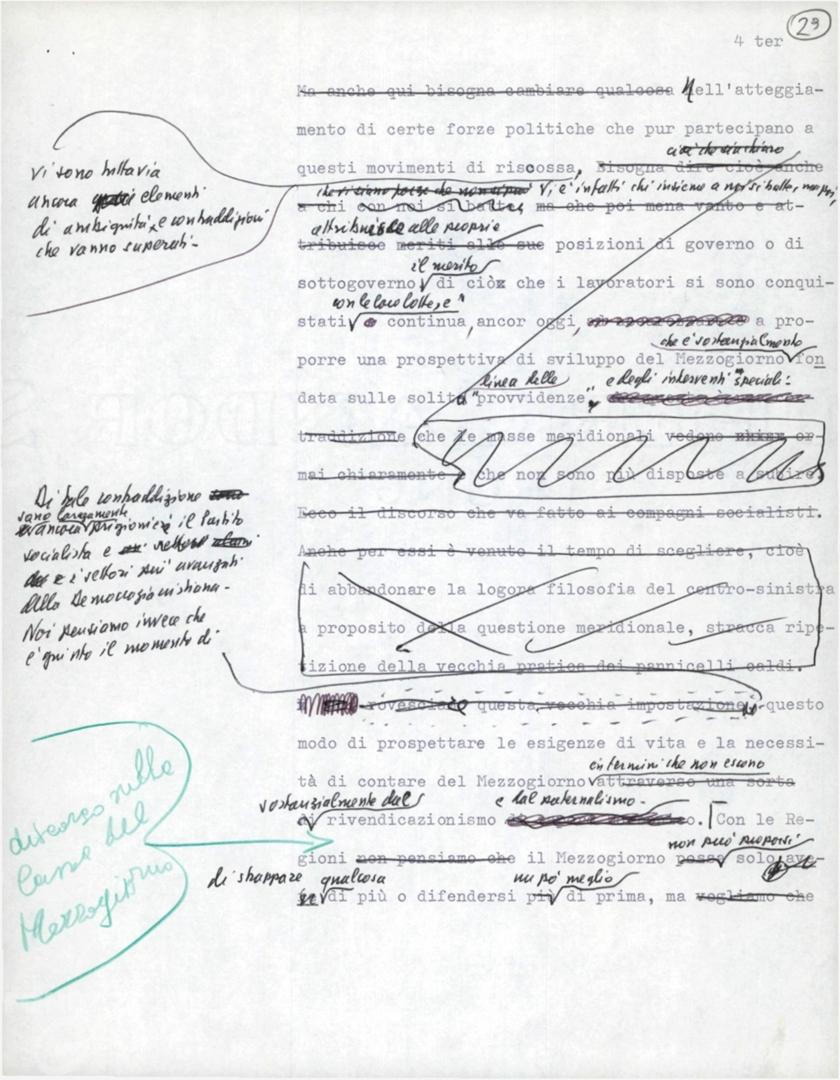 23
4 ter
Ma anche qui bisogna cambiare qualcosa Nell'atteggia-
mento di certe forze politiche che pur partecipano a
questi movimenti di riscossa, Bisogna dire cioè anche
Vi è infatti chi insieme a noi si batte, ma poi,
a chi con noi si batte, ma che poi mena vanto e at-
attribuisce alle proprie
tribuisce meriti alle sue posizioni di governo o di
il merito
sottogoverno di ciò che i lavoratori si sono conqui-
con le loro lotte, e
stati continua, ancor oggi, a pro-
che è sostanzialmente
porre una prospettiva di sviluppo del Mezzogiorno fon
linea delle e degli interventi "speciali".
data sulle solite "provvidenze"
traddizione che le masse meridionali vedono or-
mai chiaramente e che non sono più disposte a subire
Ecco il discorso che va fatto ai compagni socialisti.
Anche per essi è venuto il tempo di scegliere, cioè
di abbandonare la logora filosofia del centro-sinistra
a proposito della questione meridionale, stracca ripe-
tizione della vecchia pratica dei pannicelli caldi.
rovesciare questa vecchia impostazione, questo
modo di prospettare le esigenze di vita e la necessi-
in termini che non escono
tà di contare del Mezzogiorno attraverso una sorta
sostanzialmente dal e dal paternalismo.
di rivendicazionismo o. Con le Re-
non può proporsi
gioni non pensiamo che il Mezzogiorno possa solo ave-
di strappare qualcosa un po' meglio
re di più o difendersi più di prima, ma vogliamo che
vi sono tuttavia
ancora elementi
di ambiguità e contraddizioni
che vanno superati.
Di tale contraddizione
sono largamente
ancora prigionieri il Partito
socialista e
e i settori più avanzati
della Democrazia cristiana.
Noi pensiamo invece che
è giunto il momento di
discorso sulla
Cassa del
Mezzogiorno